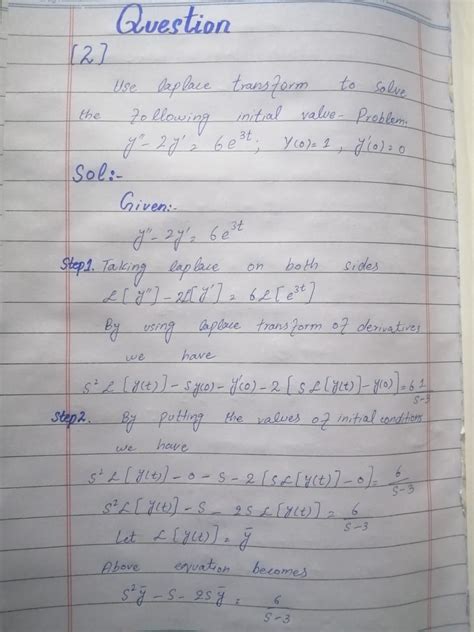 Question
[2]
Use laplace transform to solve
the following initial value-Problem.
y"-2y' = 6e^3t; y(0)=1, y'(0)=0
Sol:-
Given:-
y"-2y' = 6e^3t
Step1. Taking laplace on both sides
ℒ[y"]-2ℒ[y'] = 6ℒ[e^3t]
By using laplace transform of derivatives
we have
s² ℒ[y(t)]-sy(0)-y'(0)-2[sℒ[y(t)]-y(0)]=6 1/s-3
Step2. By putting the values of initial conditions
we have
s² ℒ[y(t)]-0-s-2[sℒ[y(t)]-0]= 6/s-3
s²ℒ[y(t)]-s-2sℒ[y(t)] = 6/s-3
Let ℒ[y(t)] = ȳ
Above equation becomes
s²ȳ-s-2sȳ = 6/s-3